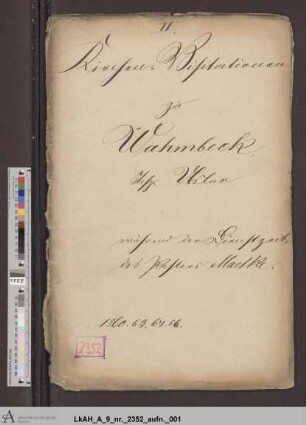 II.
Kirchen-Visitationen
zu
Wahmbeck
Insp. Uslar
während der Dienstzeit
des Pastors Maelke.
1860. 63. 64. 66.
2352
LkAH_A_9_nr._2352_aufn._001